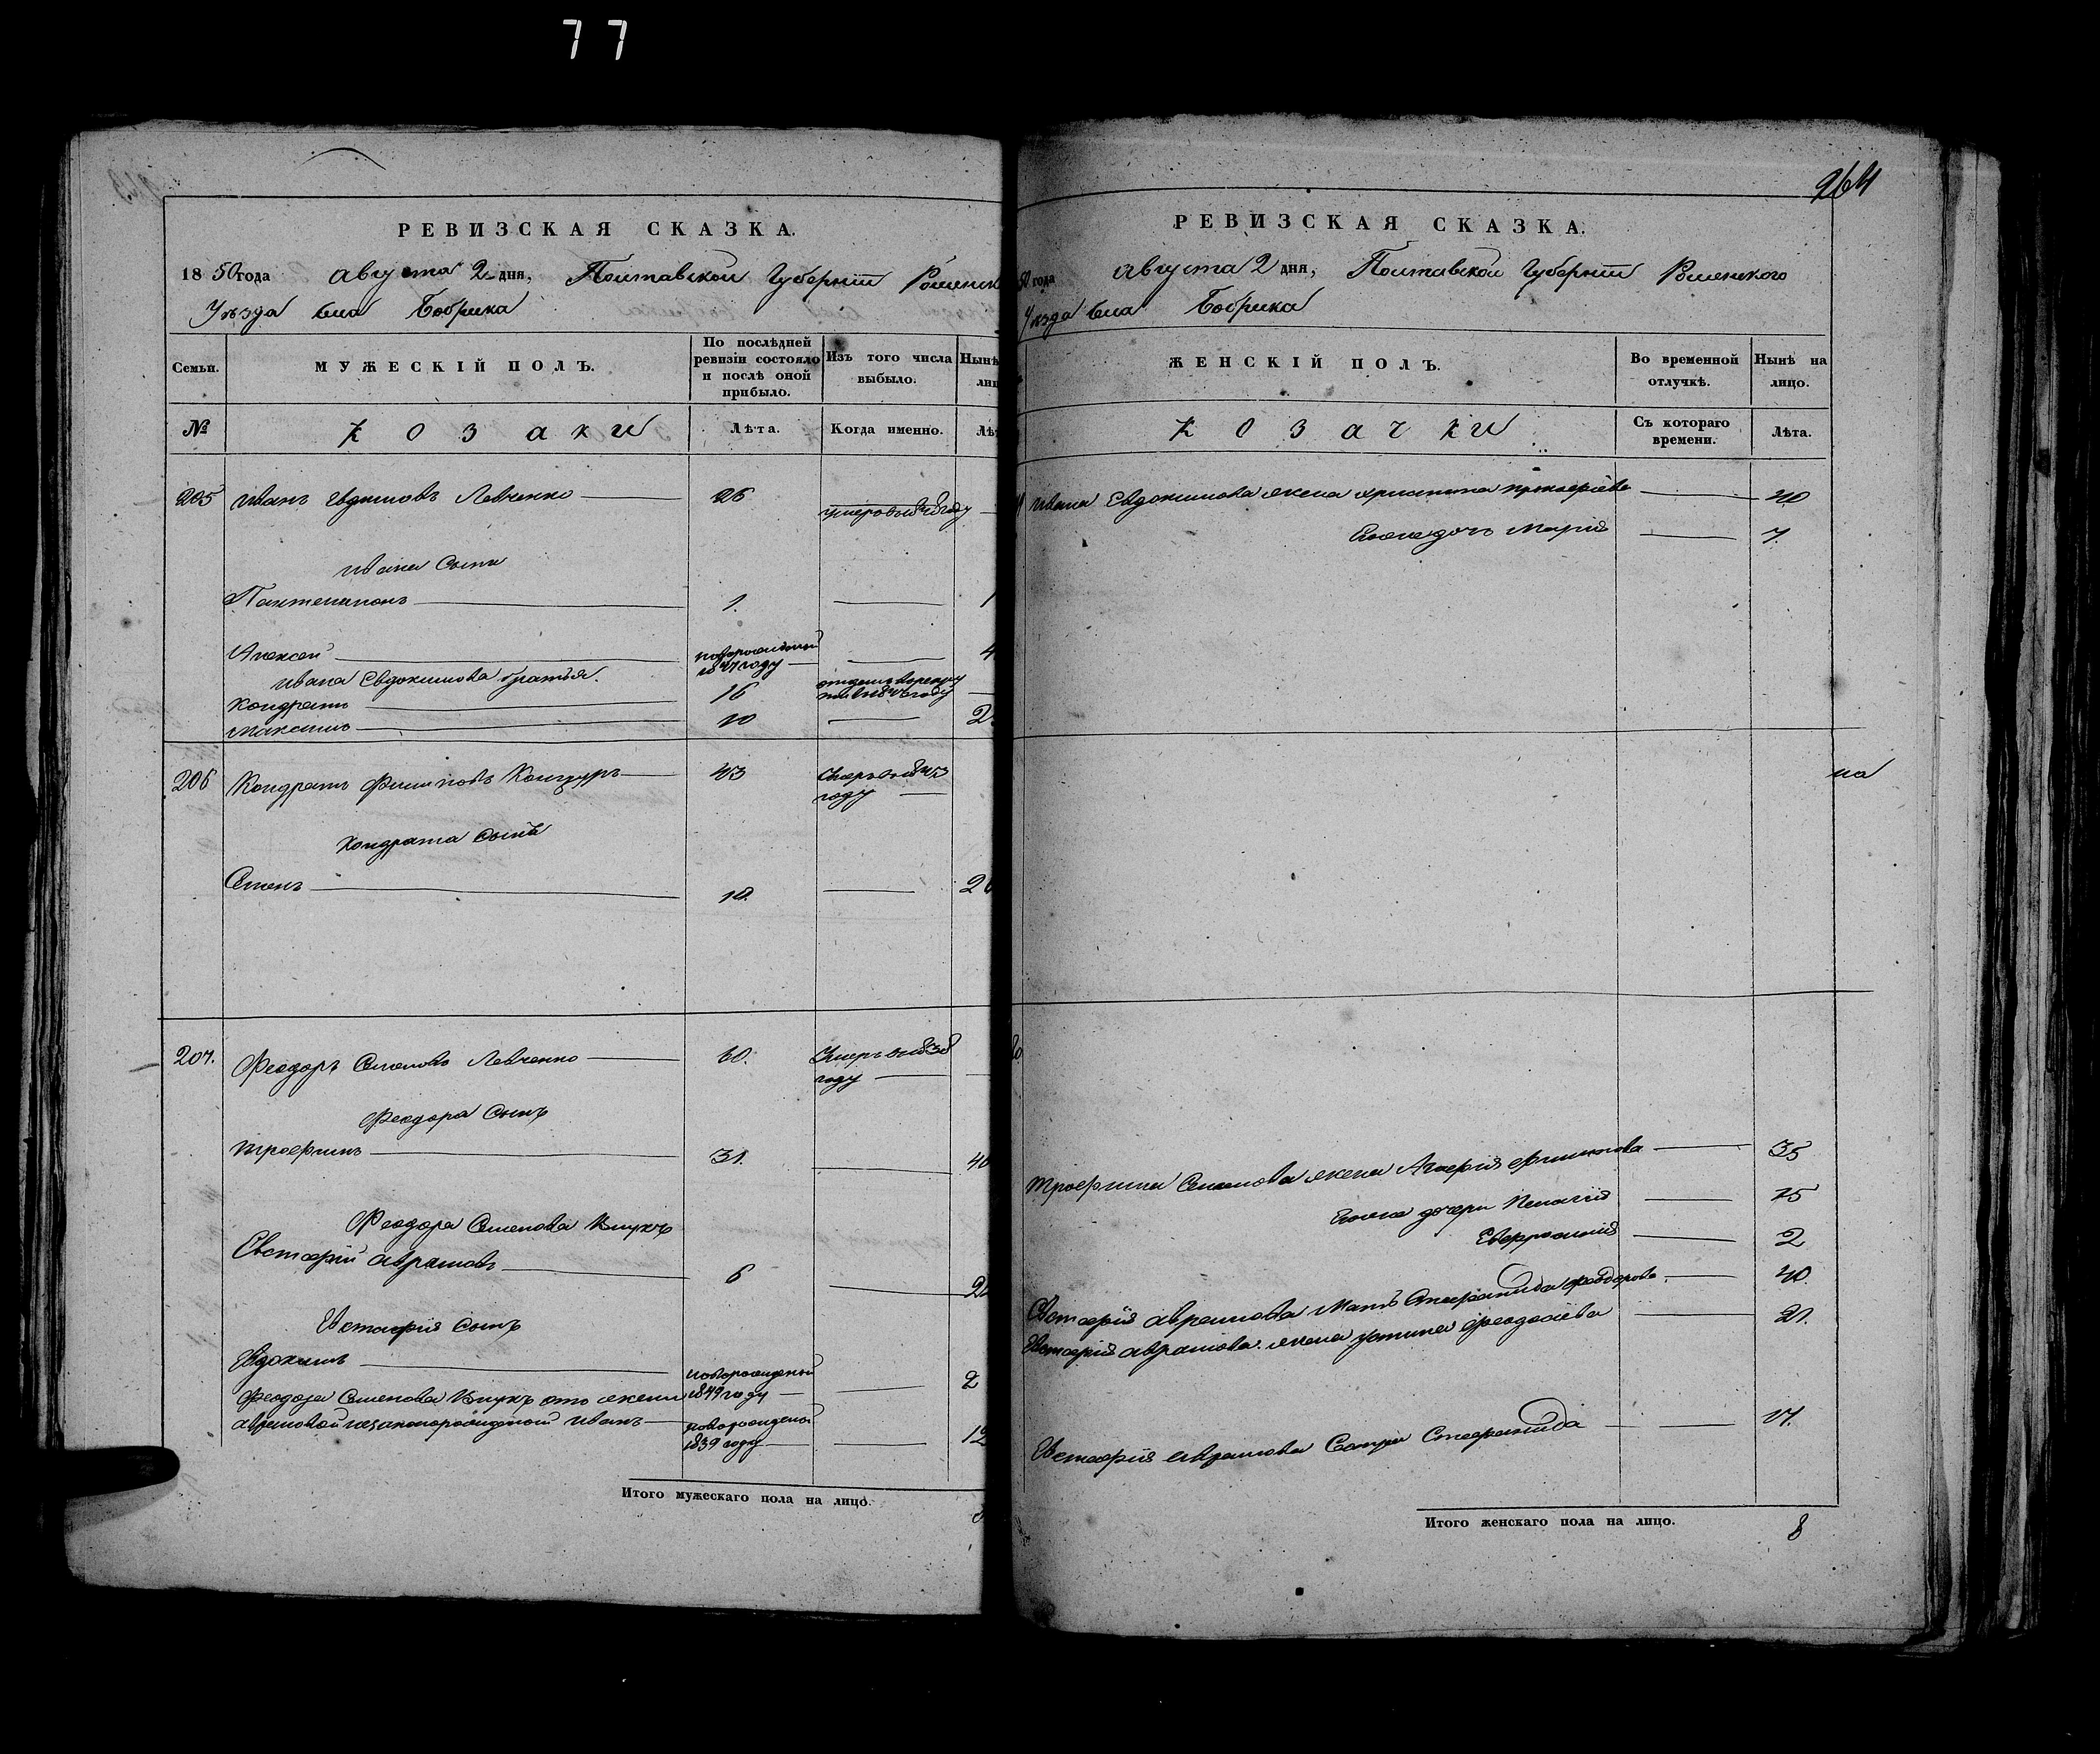 77
РЕВИЗСКАЯ СКАЗКА.
1850 года августа 2 дня, Полтавской Губерніи Роменск
Уѣзда села Бобрика
Семьи.
МУЖЕСКІЙ ПОЛЪ.
По послѣдней ревизіи состояло и послѣ оной прибыло.
Изъ того числа выбыло.
Нынѣ
лиц
№
козаки
Лѣта.
Когда именно.
Лѣт
205 Иванъ Евдокимовъ Левченко 26
умеръ в 1848 году
Ивана Сыны
Пантелимонъ 1.
Алексей новорожденый 1847 году 4
Ивана Евдокимова братья.
Кондратъ 16
Максимъ 10 2
206 Кондратъ Филиповъ Конзуръ 43 Умеръ в 1843 году
Кондрата Сынъ
Семенъ 18. 2
207. Феодоръ Семеновъ Левченко 60. Умеръ в 1838 году
Феодора Сынъ
Трофимъ 31. 4
Феодора Семенова Внукъ
Евстафій Аврамовъ 6 2
Евстафія Сынъ
Евдокимъ новорожденый 1849 году 2
Феодора Семенова Внукъ отъ жены
аврамовой незаконорожденой Иванъ новорожденый 1839 году 12
Итого мужескаго пола на лицо.
264
РЕВИЗСКАЯ СКАЗКА.
50 года августа 2 дня, Полтавской Губерніи Роменского
Уѣзда села Бобрика
ЖЕНСКІЙ ПОЛЪ.
Во временной отлучкѣ.
Нынѣ на лицо.
козачки
Съ котораго времени.
Лѣта.
Ивана Евдокимова жена Христина Прокофіева 40
Егоже дочь Марія 7.
на
Трофима Семенова жена Агафія Филипова 35
Егоже дочери Пелагія 15
Евфросинія 2
Евстафія Аврамова Мать Стефанида Феодорова 40.
Евстафія Аврамова жена Устина Феодосіева 21.
Евстафія Аврамова Сестра Стефанида 17.
Итого женскаго пола на лицо. 8